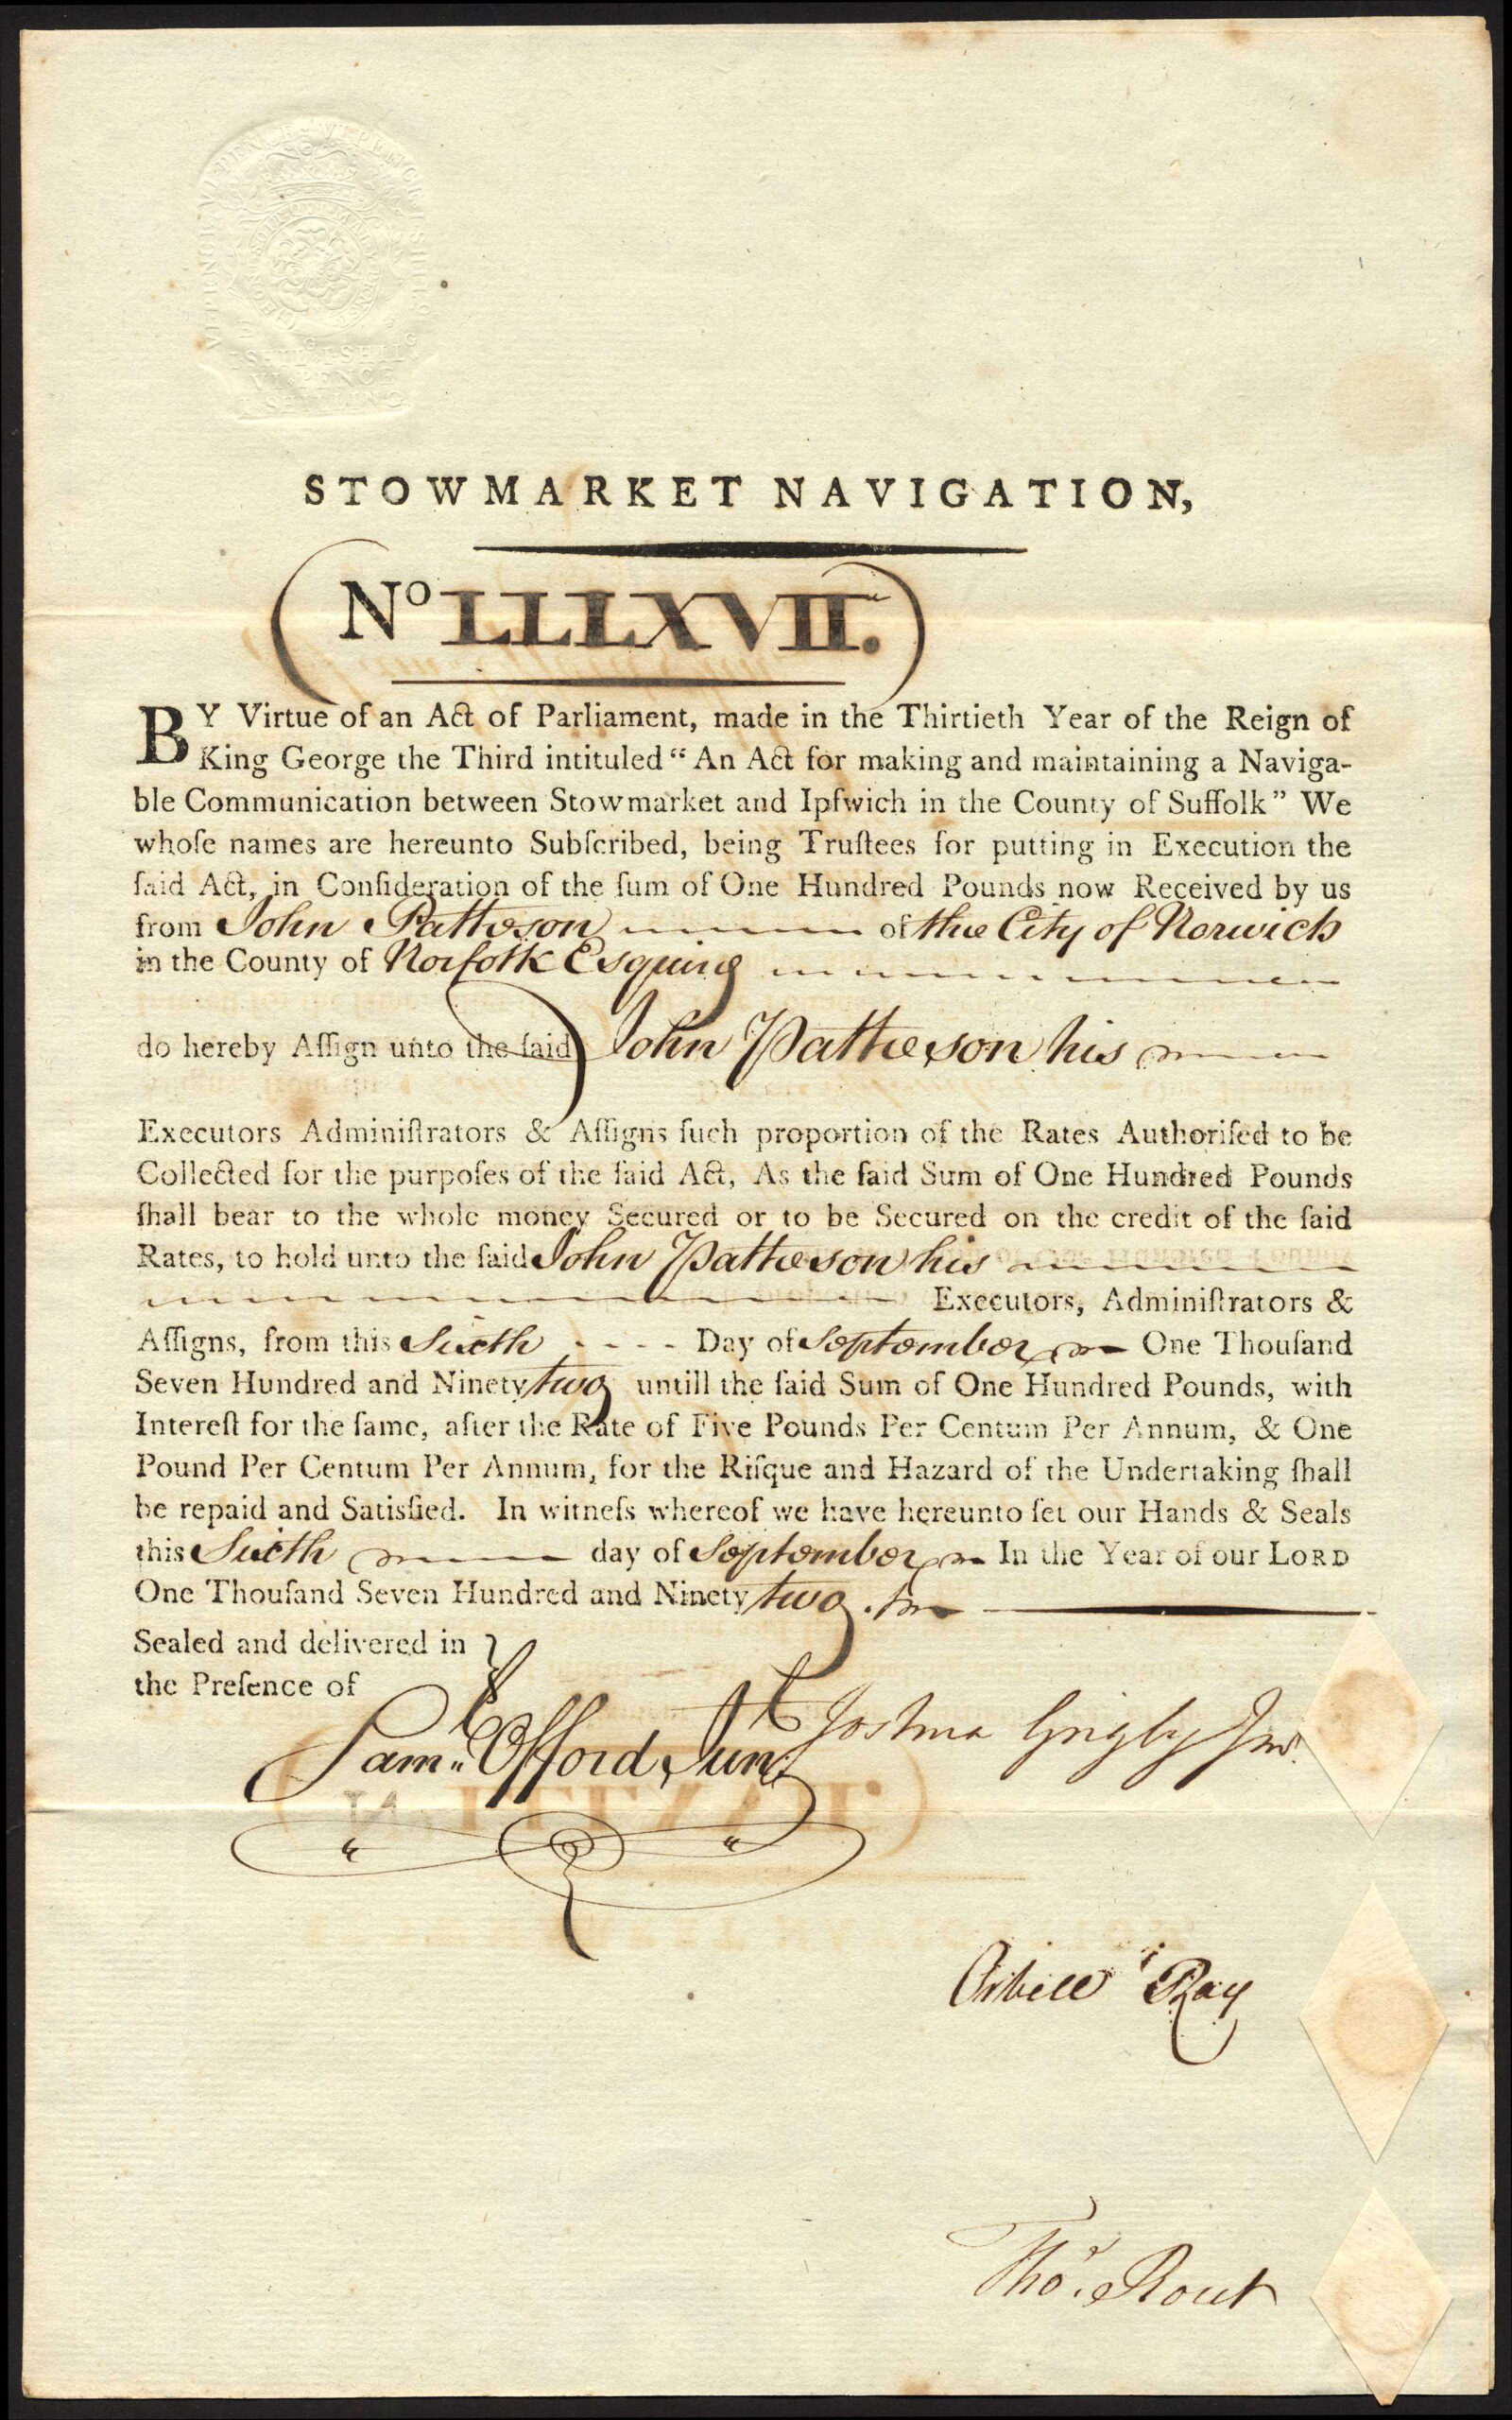 STOWMARKET NAVIGATION,
No LLLXVII.
BY Virtue of an Act of Parliament, made in the Thirtieth Year of the Reign of
King George the Third intituled “ An Act for making and maintaining a Naviga-
ble Communication between Stowmarket and Ipſwich in the County of Suffolk” We
whoſe names are hereunto Subſcribed, being Truſtees for putting in Execution the
ſaid Act, in Conſideration of the ſum of One Hundred Pounds now Received by us
from John Patteson of the City of Norwich
in the County of Norfolk Esquire
do hereby Aſſign unto the ſaid John Patteson his
Executors Adminiſtrators & Aſſigns ſuch proportion of the Rates Authoriſed to be
Collected for the purpoſes of the ſaid Act, As the ſaid Sum of One Hundred Pounds
ſhall bear to the whole money Secured or to be Secured on the credit of the ſaid
Rates, to hold unto the ſaid John Patteson his
Executors, Adminiſtrators &
Aſſigns, from this Sixth Day of September One Thouſand
Seven Hundred and Ninety two untill the ſaid Sum of One Hundred Pounds, with
Intereſt for the ſame, after the Rate of Five Pounds Per Centum Per Annum, & One
Pound Per Centum Per Annum, for the Riſque and Hazard of the Undertaking ſhall
be repaid and Satisfied. In witneſs whereof we have hereunto ſet our Hands & Seals
this Sixth day of September In the Year of our LORD
One Thouſand Seven Hundred and Ninety two.
Sealed and delivered in
the Preſence of
Saml. Offord Junr.
Joshua Grigby Junr.
Orbell Ray
Thos. Rout